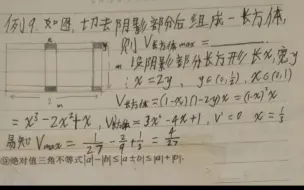 例9.如图,切去阴影部分后组成一长方体,
则V长方体max=
设阴影部分长方形长x,宽y
m
:x=2y, y∈(0,½), x∈(0,1)
V长方体=(1-x)(1-2y)x=(1-x)²x
2
m
=x³-2x²+x, V'长方体=3x²-4x+1, V'=0 x=⅓
易知Vmax=1/27-2/9+1/3=4/27
绝对值三角不等式|a|-|b|≤|a±b|≤|a|+|b|.